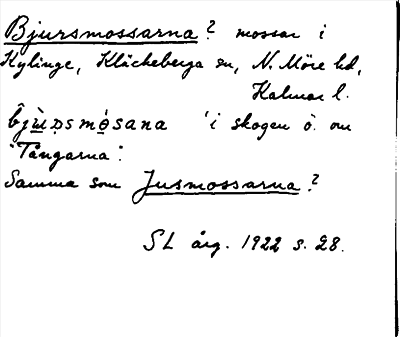 Bjursmossarna? mossar i
Kylinge, Kläckeberga sn, N. Möre hd,
Kalmar l.
bjùṇsmósana 'i skogen ö. om
"Tångarna".
Samma som Jusmossarna?
SL årg. 1922 s. 28.